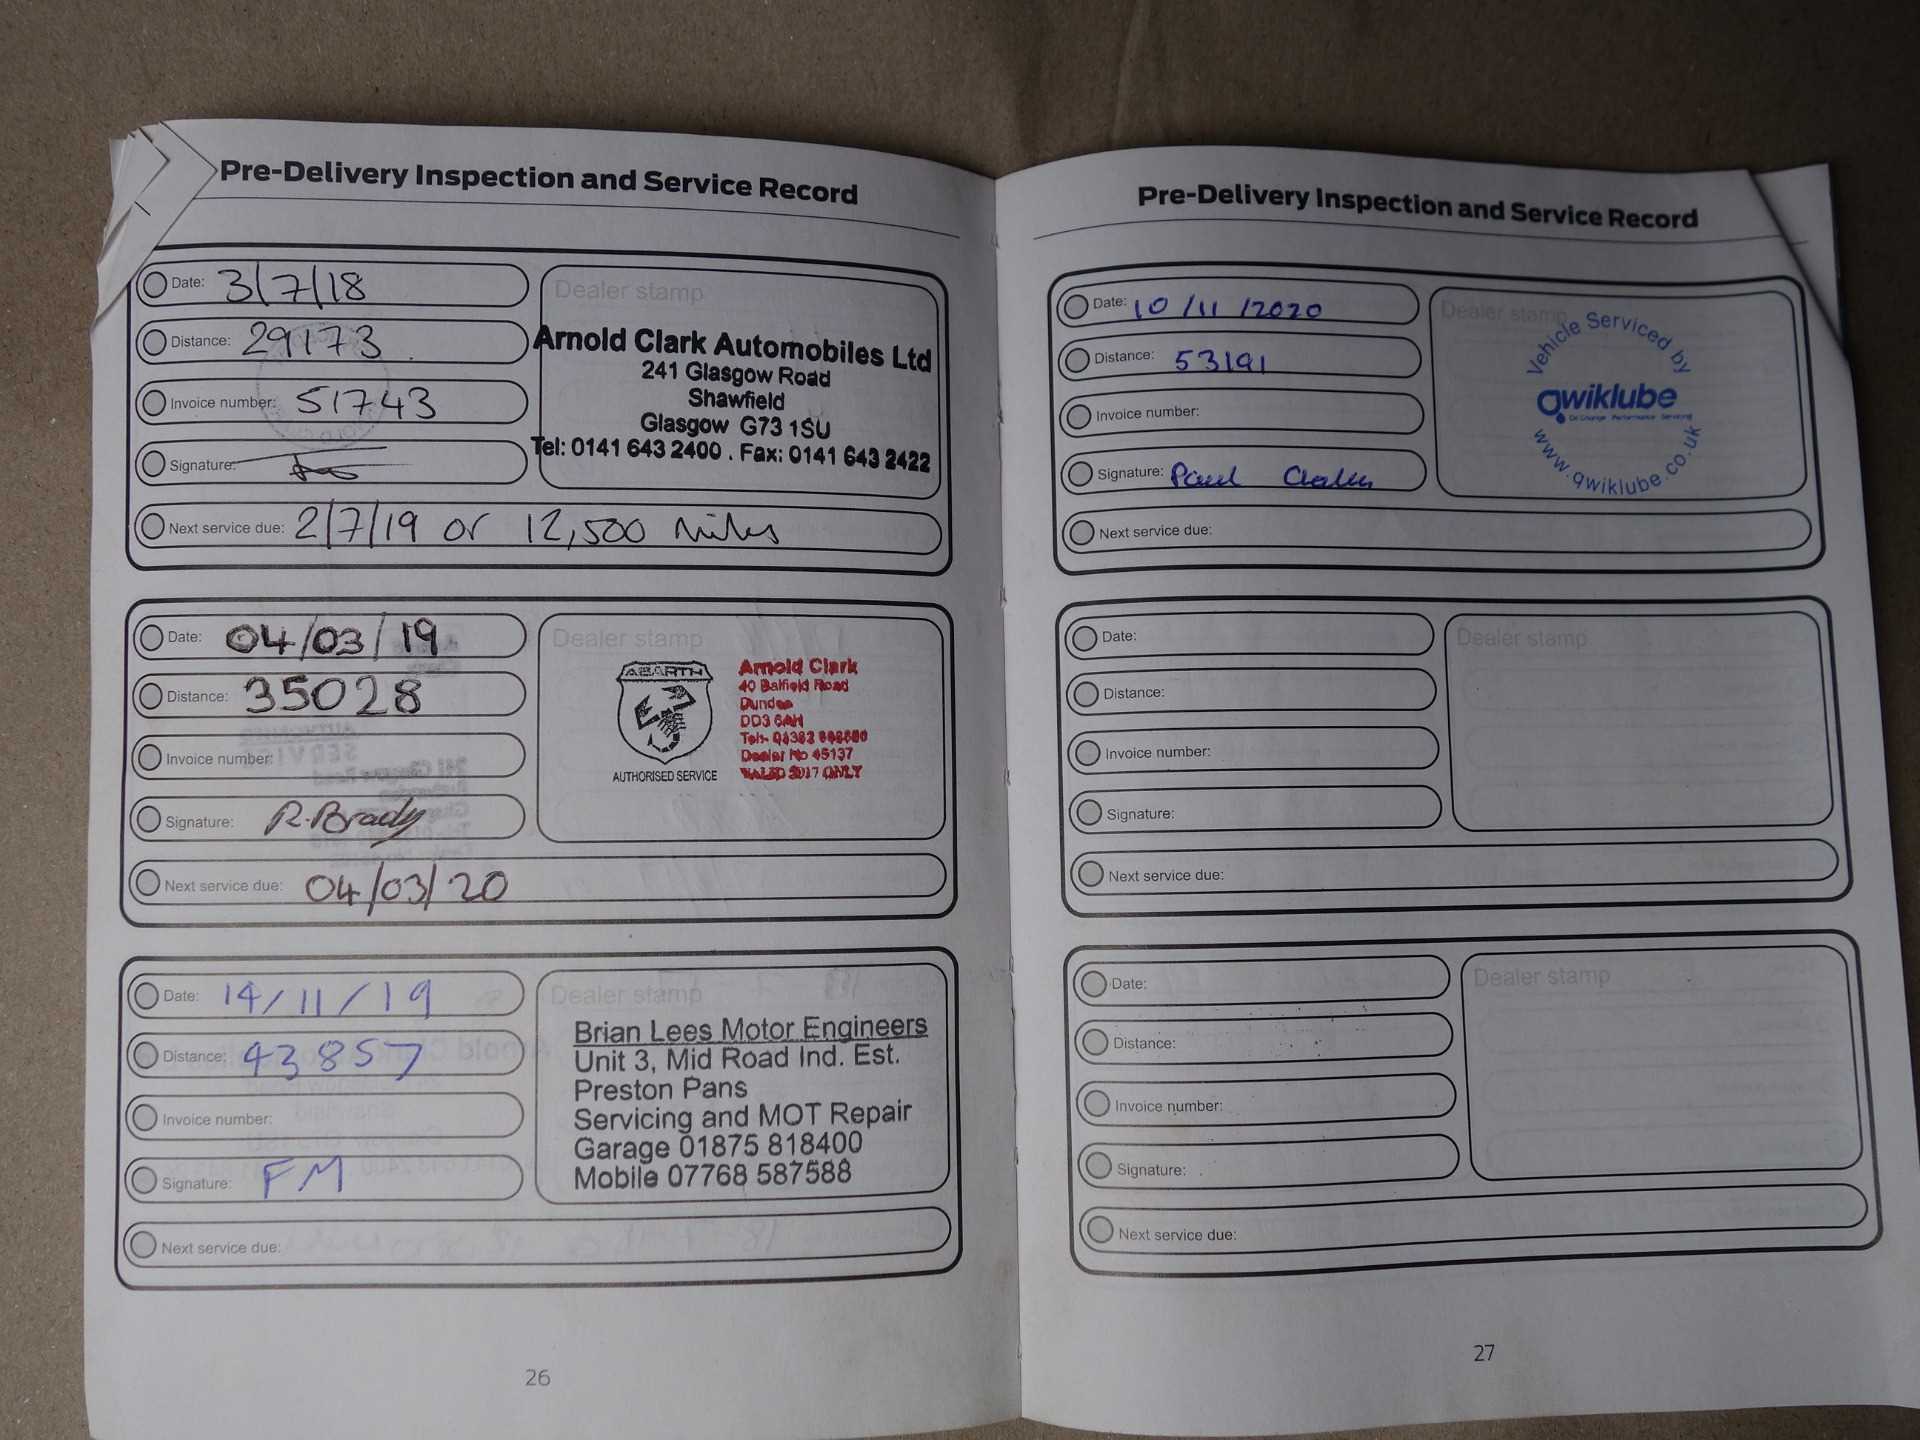 Pre-Delivery Inspection and Service Record
Date: 3/7/18
Distance: 29173
Invoice number: 51743
Signature:
Next service due: 2/7/19 or 12,500 miles
Dealer stamp
Arnold Clark Automobiles Ltd
241 Glasgow Road
Shawfield
Glasgow G73 1SU
Tel: 0141 643 2400 . Fax: 0141 643 2422
Date: 04/03/19
Distance: 35028
Invoice number:
Signature: R.Brady
Next service due: 04/03/20
Dealer stamp
ABARTH
AUTHORISED SERVICE
Arnold Clark
40 Balfield Road
Dundee
DD3 6AH
Tel:-
Dealer No 45137
VALID 2017 ONLY
Date: 14/11/19
Distance: 43857
Invoice number:
Signature: FM
Next service due:
Dealer stamp
Brian Lees Motor Engineers
Unit 3, Mid Road Ind. Est.
Preston Pans
Servicing and MOT Repair
Garage 01875 818400
Mobile 07768 587588
26
Pre-Delivery Inspection and Service Record
Date: 10/11/2020
Distance: 53191
Invoice number:
Signature: Paul
Next service due:
Dealer stamp
Vehicle Serviced by
Qwiklube
Oil Change Performance Servicing
www.qwiklube.co.uk
Date:
Distance:
Invoice number:
Signature:
Next service due:
Dealer stamp
Date:
Distance:
Invoice number:
Signature:
Next service due:
Dealer stamp
27